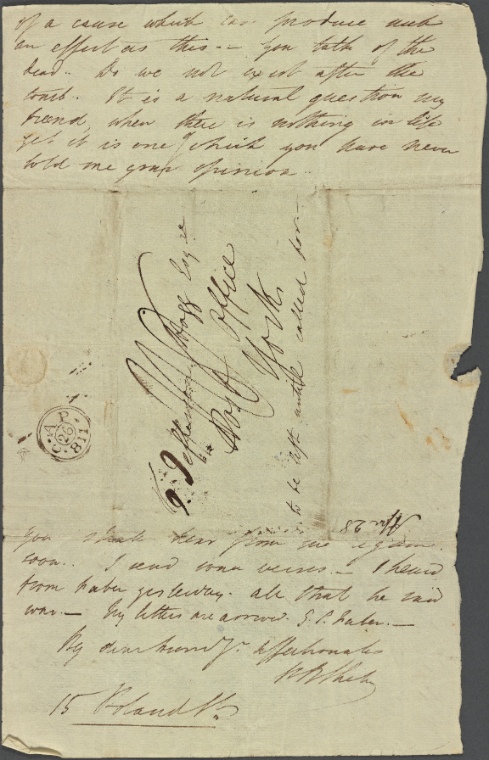 of a cause which can produce such
an effect as this — You talk of the
dead. Do we not exist after the
tomb. It is a natural question my
friend, when there is nothing in life
yet it is one which you have never
told me your opinion.
T. Jefferson Hogg Esqre
Post Office
York
to be left until called for
A P
26
811
Apr 28
You shall hear from me again
soon. I send some verses — I heard
from Faber yesterday. All that he said
was — My letters are arrived G. S. Faber. —
My dear friend Yr. affectionate
PBShelley
15 Poland St.